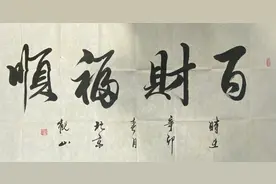 百財福順
時逢
辛卯
春月
北京
觀山